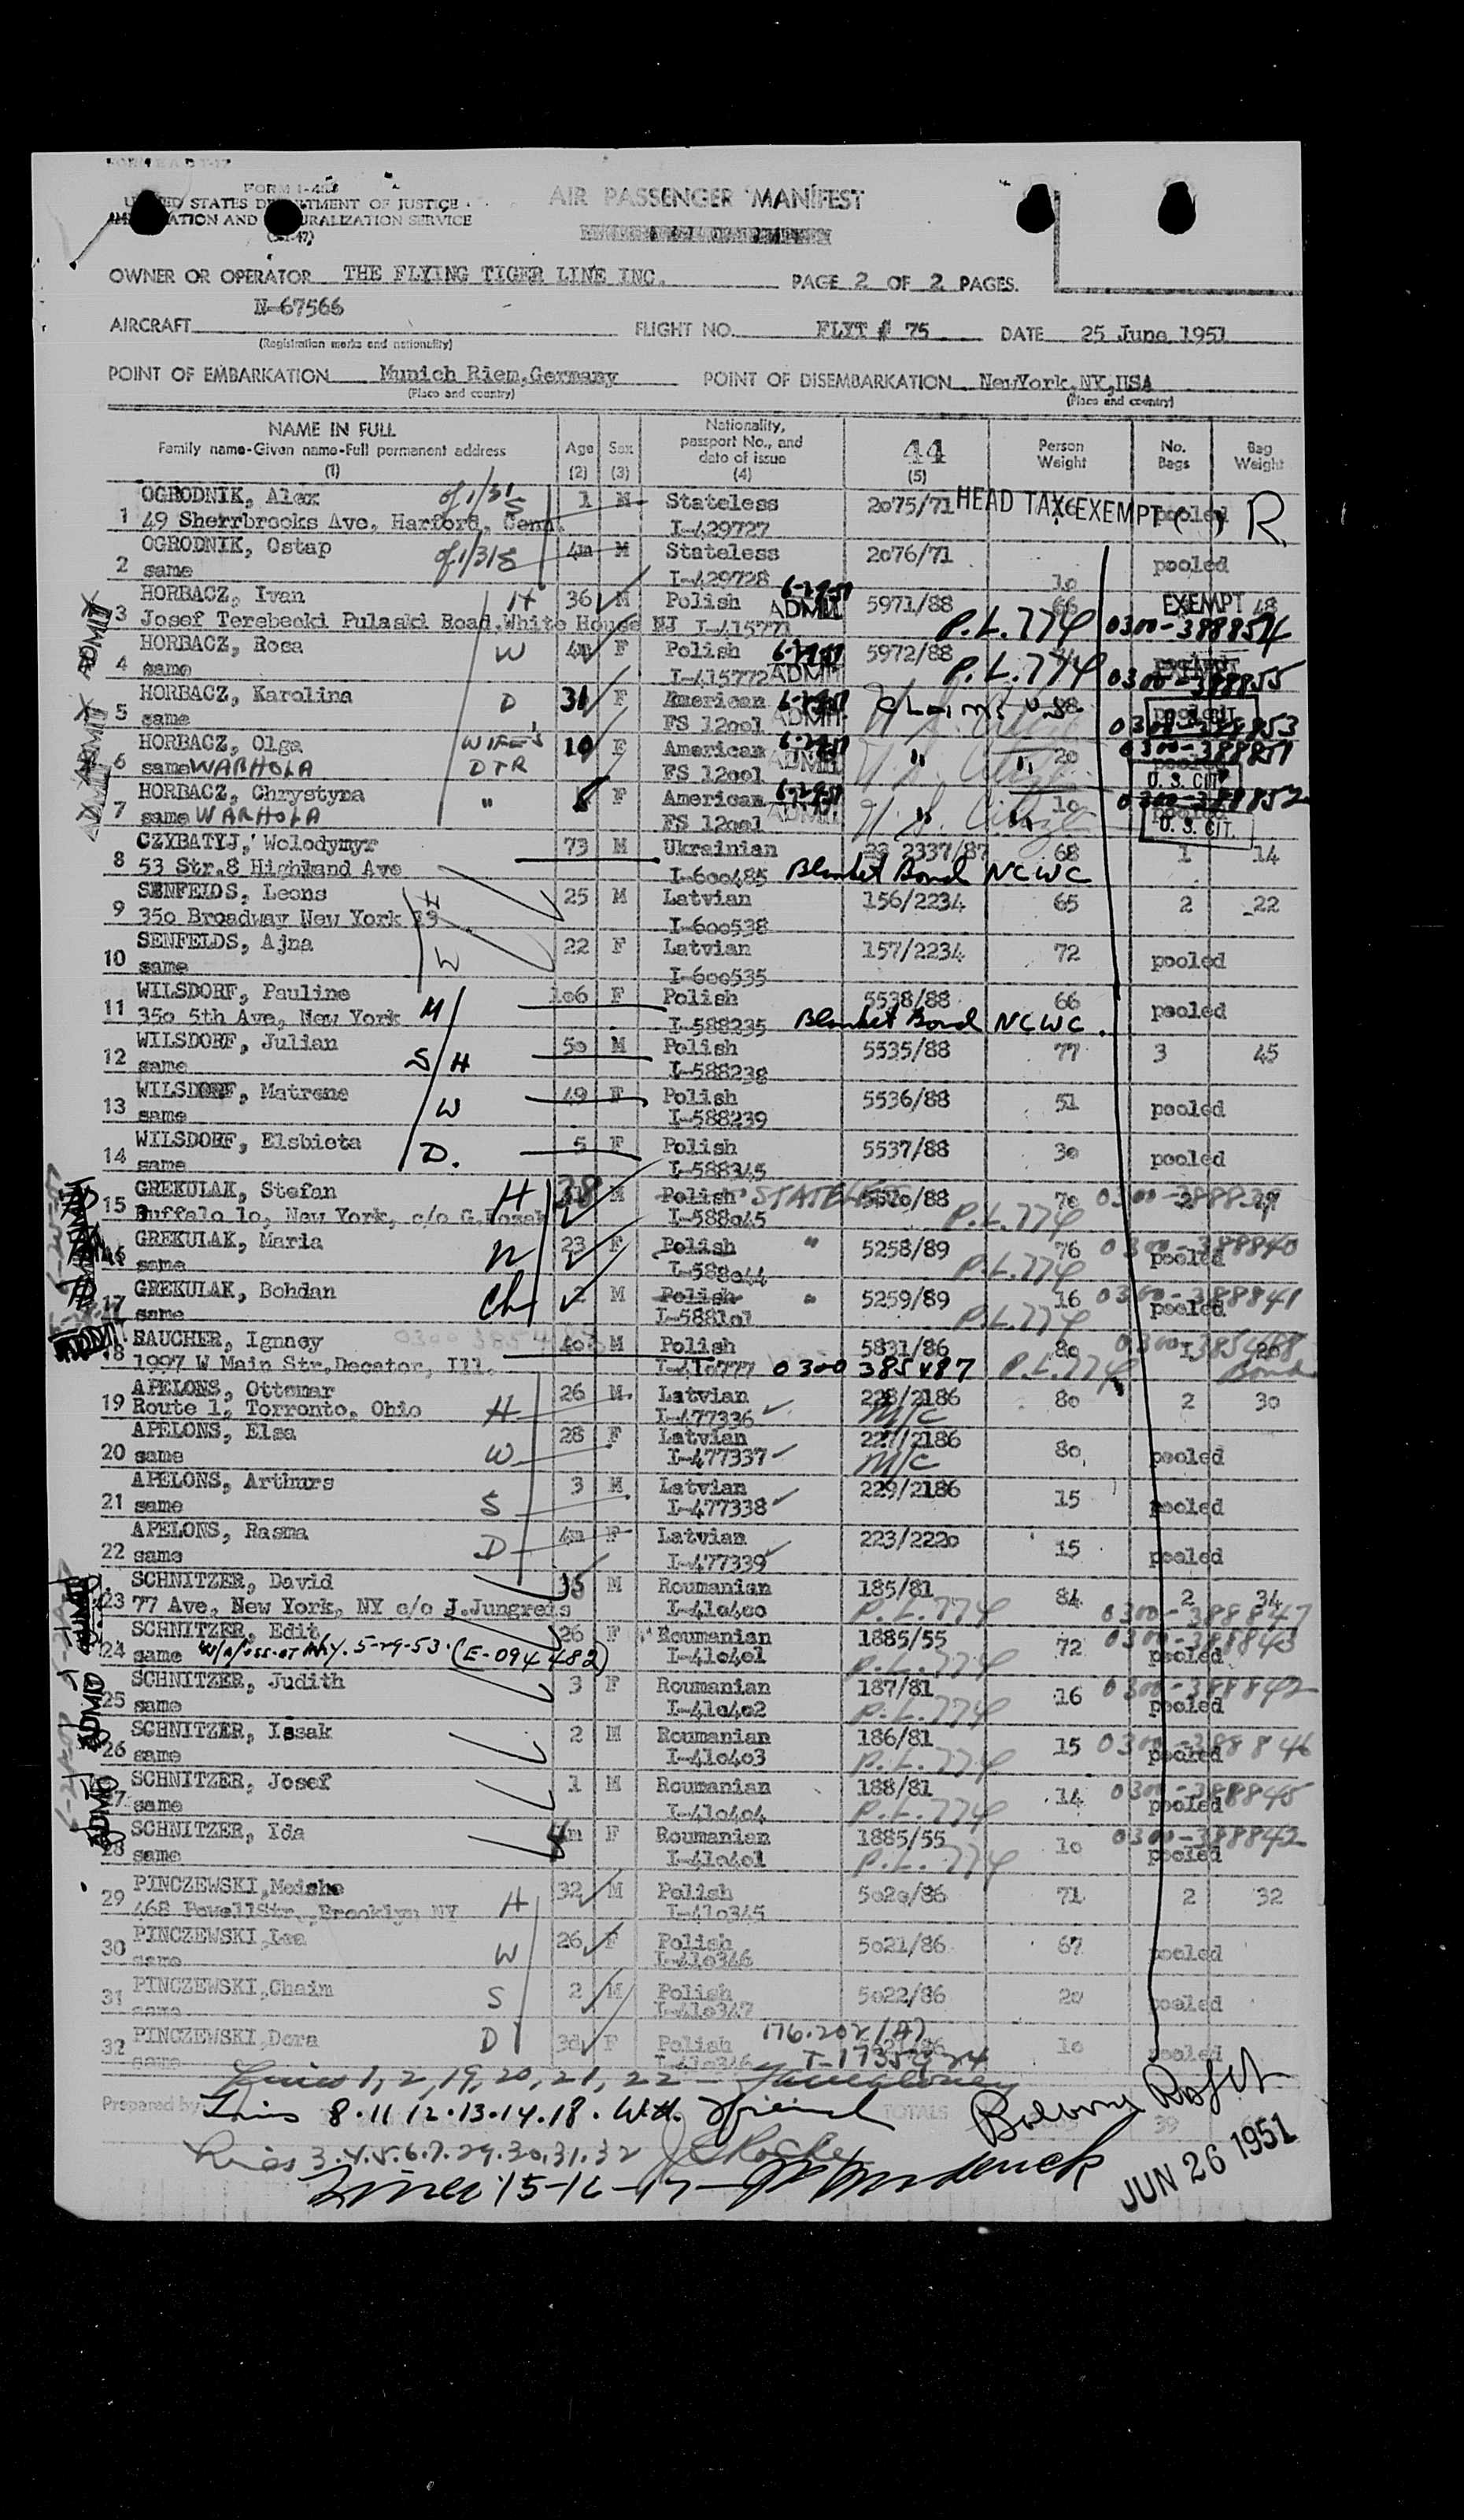 FORM I-466
UNITED STATES DEPARTMENT OF JUSTICE
IMMIGRATION AND NATURALIZATION SERVICE
AIR PASSENGER MANIFEST
OWNER OR OPERATOR THE FLYING TIGER LINE INC. PAGE 2 OF 2 PAGES.
AIRCRAFT N-67566 FLIGHT NO. FLYT # 75 DATE 25 June 1951
(Registration marks and nationality)
POINT OF EMBARKATION Munich Riem,Germany POINT OF DISEMBARKATION NewYork,NY,USA
(Place and country) (Place and country)
NAME IN FULL Age Sex Nationality, passport No., and date of issue 44 Person Weight No. Bags Bag Weight
Family name-Given name-Full permanent address
(1) (2) (3) (4) (5)
OGRODNIK, Alex of 1/31 S 1 M Stateless 2075/71 HEAD TAX EXEMPT ( ) pooled R
1 49 Sherrbrooks Ave, Harford, Conn. I-429727
OGRODNIK, Ostap of 1/31 S 4m M Stateless 2076/71 10 pooled
2 same I-429728
HORBACZ, Ivan H 36 M Polish ADMIT 5971/88 66 EXEMPT 48
3 Josef Terebecki Pulaski Road,White House NJ I-415771 P.L.774 0300-388854
HORBACZ, Rosa W F Polish 5972/88 pooled
4 same I-415772 ADMIT P.L.774 0300-388855
HORBACZ, Karolina D 31 F American Claims U.S. pooled
5 same FS 12001 ADMIT U.S. Citizen 0300-388853
HORBACZ, Olga WIFE'S 10 F American " 20 0300-388851
6 same WARHOLA DTR FS 12001 ADMIT U.S. Citizen U.S. CIT.
HORBACZ, Chrystyna " 8 F American " 10 0300-388852
7 same WARHOLA FS 12001 ADMIT U.S. Citizen U.S. CIT.
CZYBATYJ, Wolodymyr 73 M Ukrainian 2337/87 68 1 14
8 53 Str.8 Highland Ave I-600485 Blanket Bond NCWC
SENFELDS, Leons H 25 M Latvian 156/2234 65 2 22
9 350 Broadway New York I-600538
SENFELDS, Ajna W 22 F Latvian 157/2234 72 pooled
10 same I-600535
WILSDORF, Pauline M 106 F Polish 5538/88 66 pooled
11 350 5th Ave, New York I-588235 Blanket Bond NCWC.
WILSDORF, Julian S/H 50 M Polish 5535/88 77 3 45
12 same I-588238
WILSDORF, Matrene W 49 F Polish 5536/88 51 pooled
13 same I-588239
WILSDORF, Elsbieta D. 5 F Polish 5537/88 30 pooled
14 same I-588345
GREKULAK, Stefan H 38 M Polish STATELESS 70 2 0300-388839
15 Buffalo 10, New York, c/o G.Kozak I-588045 P.L.774
GREKULAK, Maria W 23 F Polish " 5258/89 76 0300-388840
16 same I-588044 P.L.774 pooled
GREKULAK, Bohdan Ch M Polish " 5259/89 16 0300-388841
17 same I-588101 P.L.774 pooled
BAUCHER, Ignacy 40 M Polish 5831/86 80 1 20
18 1997 W Main Str,Decator, Ill. I-410777 0300 385487 P.L.774 Bond
APELONS, Ottomar H 26 M Latvian 228/2186 80 2 30
19 Route 1, Torronto, Ohio I-477336 M/C
APELONS, Elsa W 28 F Latvian 227/2186 80 pooled
20 same I-477337 M/C
APELONS, Arthurs S 3 M Latvian 229/2186 15 pooled
21 same I-477338
APELONS, Rasma D 4m F Latvian 223/2220 15 pooled
22 same I-477339
SCHNITZER, David 35 M Roumanian 185/81 84 2 34
23 77 Ave, New York, NY c/o J.Jungreis I-410400 P.L.774 0300-388847
SCHNITZER, Edit 26 F Roumanian 1885/55 72 0300-388843
24 same 5-29-53 (E-094482) I-410401 P.L.774 pooled
SCHNITZER, Judith 3 F Roumanian 187/81 16 0300-388842
25 same I-410402 P.L.774 pooled
SCHNITZER, Issak 2 M Roumanian 186/81 15 0300-388846
26 same I-410403 P.L.774 pooled
SCHNITZER, Josef 1 M Roumanian 188/81 14 0300-388845
27 same I-410404 P.L.774 pooled
SCHNITZER, Ida 4m F Roumanian 1885/55 10 0300-388842
28 same I-410401 P.L.774 pooled
PINCZEWSKI,Moishe H 32 M Polish 5020/86 71 2 32
29 468 PowellStr.,Brooklyn NY I-410345
PINCZEWSKI,Lea W 26 F Polish 5021/86 67 pooled
30 same I-410346
PINCZEWSKI,Chaim S 2 M Polish 5022/86 20 pooled
31 same I-410347
PINCZEWSKI,Dora D F Polish 10 pooled
32 same I-410346
Lines 1, 2, 19, 20, 21, 22
Prepared by TOTALS 39
Lines 8.11 12.13.14.18.
Lines 3.4.5.6.7.29.30.31.32
Lines 15-16-17
JUN 26 1951